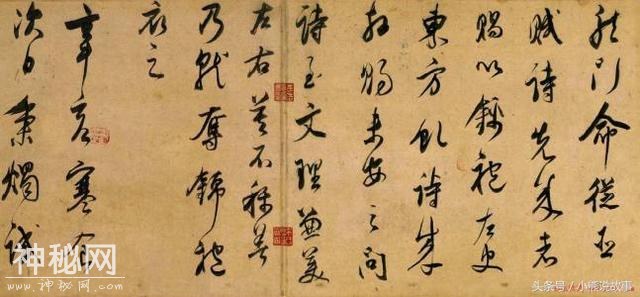 龍門命從臣
賦詩先成者
賜以錦袍左史
東方虬詩成
拜賜未安之問
詩至文理兼美
左右莫不稱善
乃就奪錦袍
衣之
辛亥寒食
次日秉燭試
神秘网
www.神秘网.com
头条号 / 小熊说故事